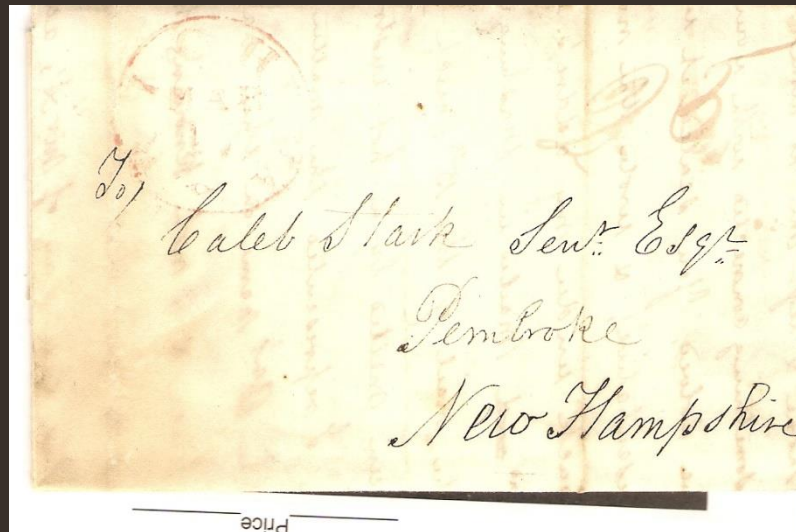 25
To,
Caleb Stark Senr. Esqr.
Pembroke
New Hampshire
Price